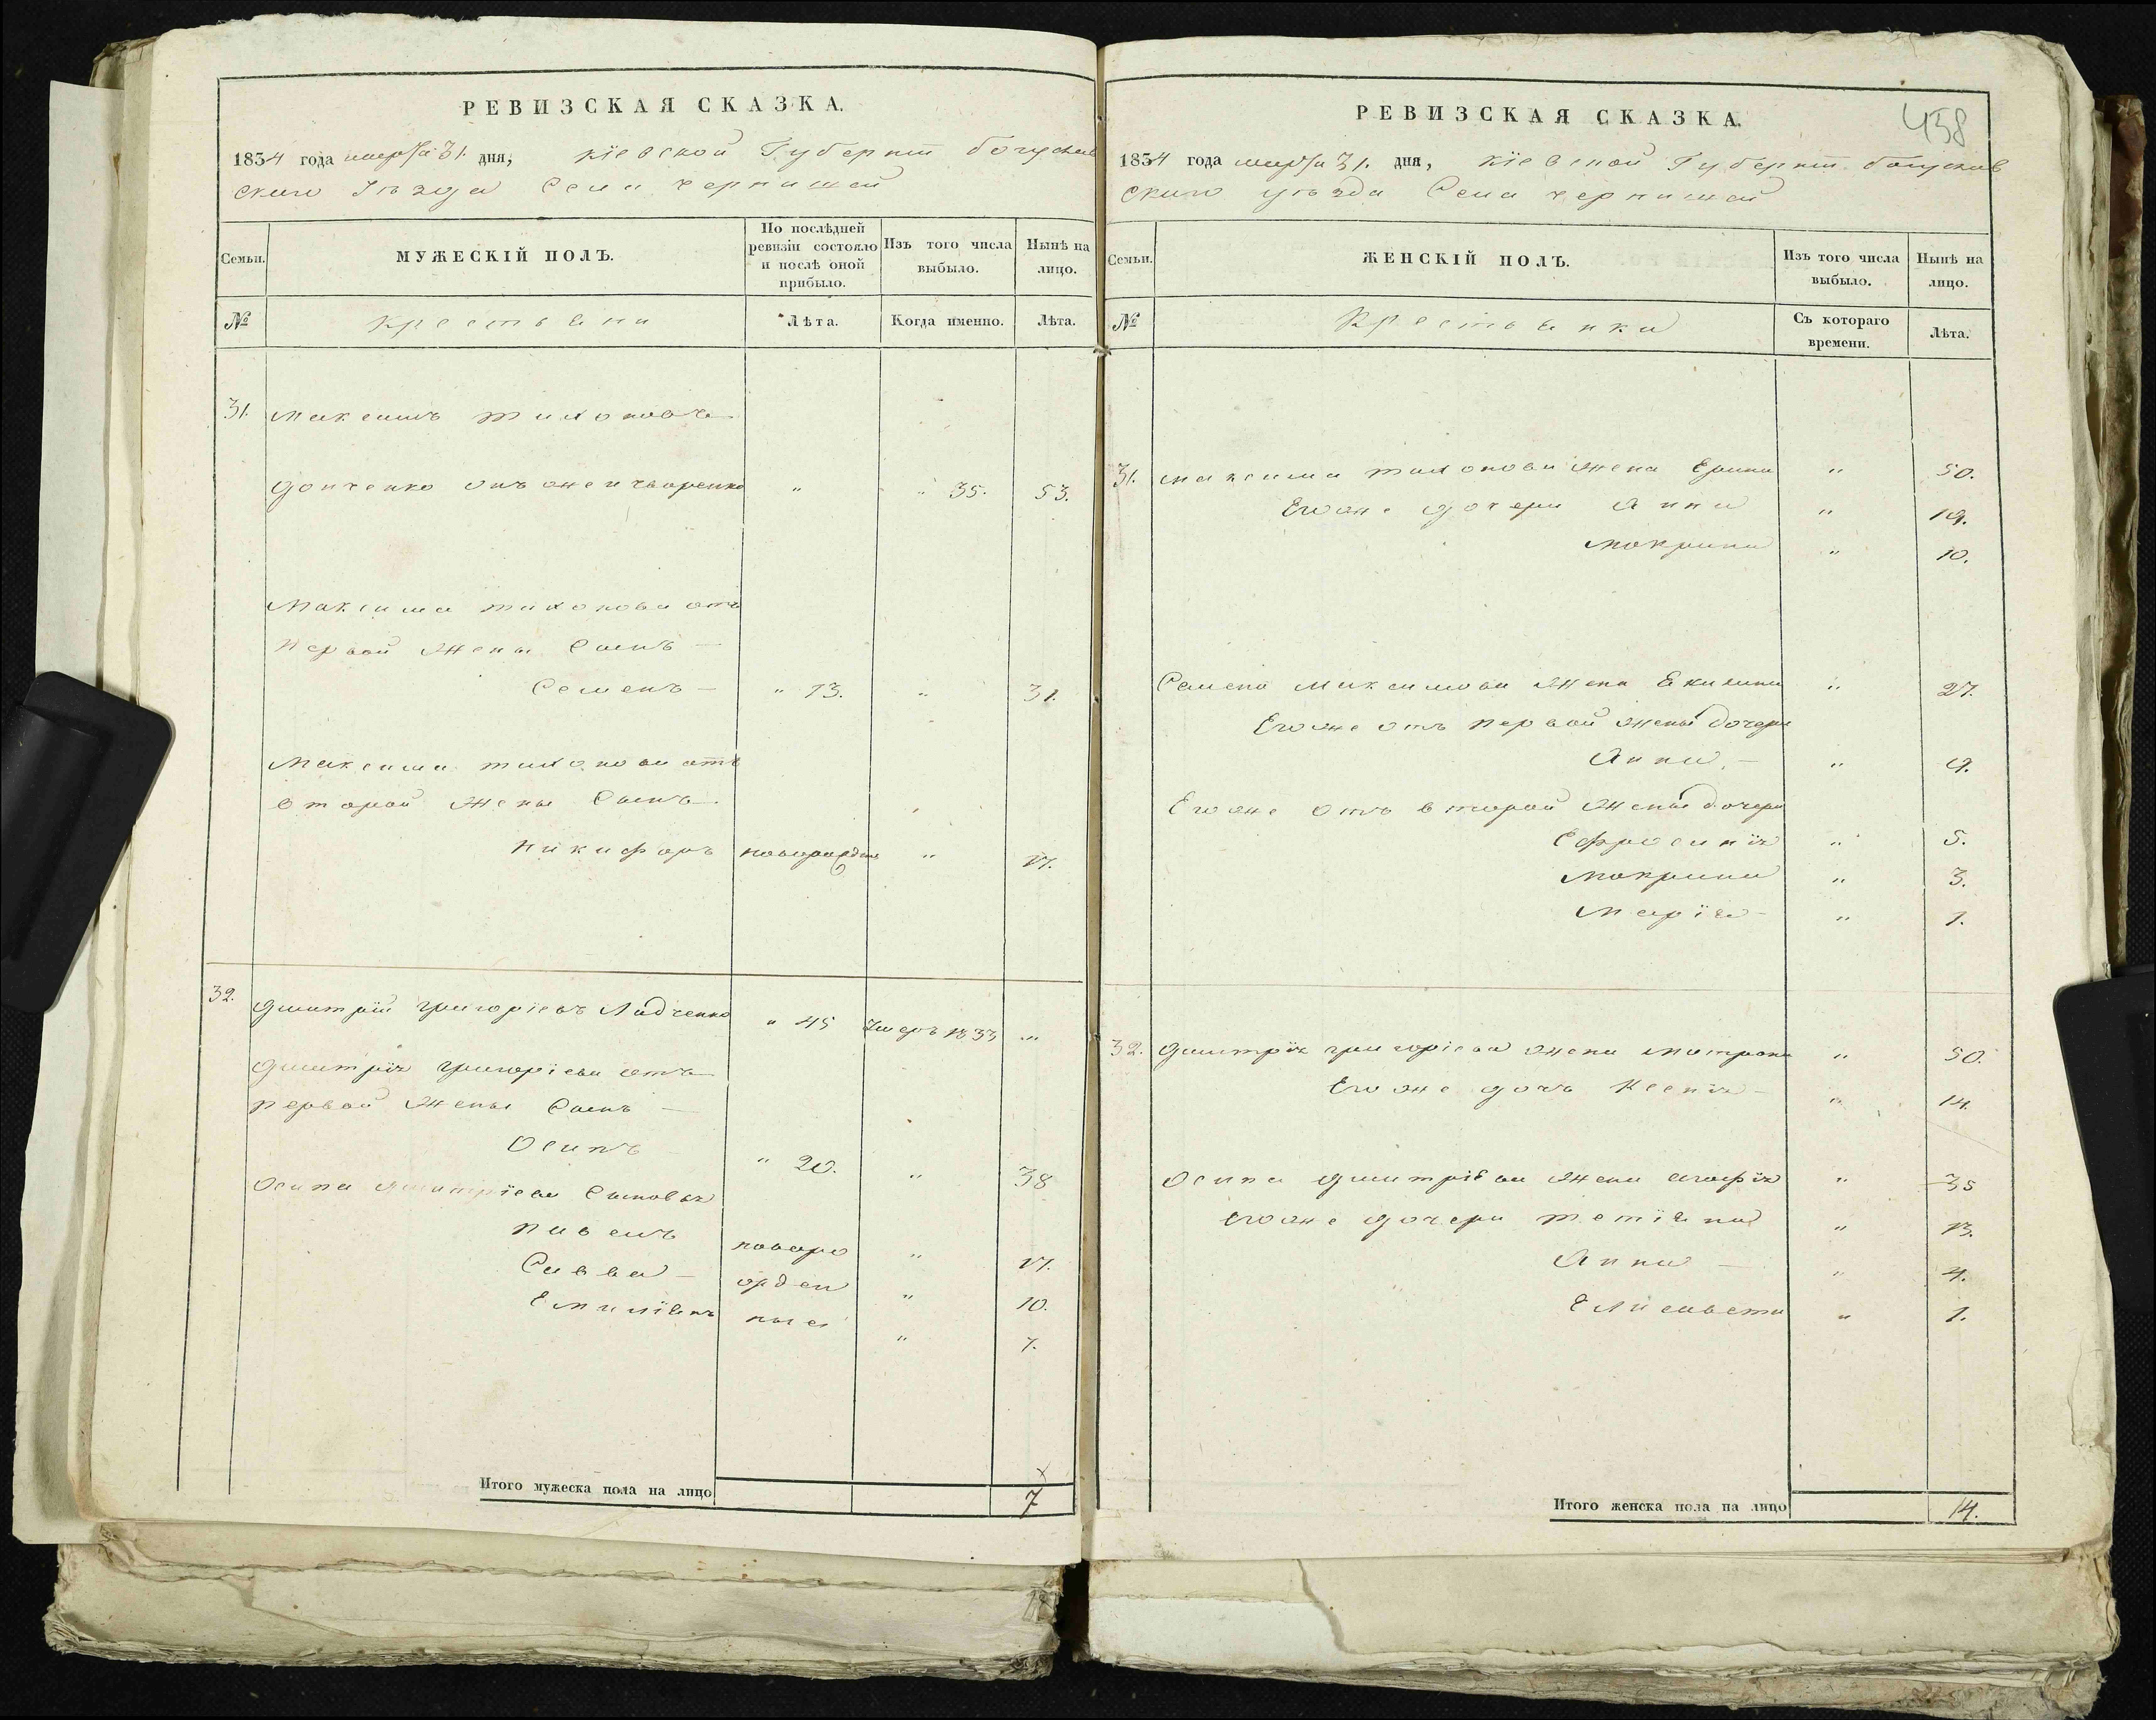 РЕВИЗСКАЯ СКАЗКА.
1834 года марта 31. дня, Кіевской Губерніи богуслав
скаго уѣзда Села
Семьи.
МУЖЕСКІЙ ПОЛЪ.
По послѣдней
ревизіи состояло
и послѣ оной
прибыло.
Изъ того числа
выбыло.
Нынѣ на
лицо.
№
Крестьяни
Лѣта.
Когда именно.
Лѣта.
31. Максимъ Тихоновъ
Донченко онъ же " " 35. 53.
Максима Тихонова отъ
первой жены Сынъ —
Семенъ — " 13. " 31.
Максима Тихонова отъ
второй жены Сынъ —
Никифоръ " 17.
32. Дмитрій Григоріевъ " 45 Умеръ 1833 "
Дмитрія Григоріева отъ
первой жены Сынъ —
Осипъ " 20. " 38
Осипа Дмитріева Сыновья
Павелъ новоро " 17.
Савва — жден " 10.
Емиліянъ ные " 7.
Итого мужеска пола на лицо 7
РЕВИЗСКАЯ СКАЗКА.
458
1834 года марта 31. дня, Кіевской Губерніи богуслав
скаго уѣзда Села
Семьи.
ЖЕНСКІЙ ПОЛЪ.
Изъ того числа
выбыло.
Нынѣ на
лицо.
№
Крестьянки
Съ котораго
времени.
Лѣта.
31. Максима Тихонова жена Ирина " 50.
Егоже дочери Анна " 19.
Мокрина " 10.
Семена Максимова жена Акилина " 27.
Егоже отъ первой жены дочери
Анна — " 9.
Егоже отъ второй жены дочери
Ефросинія " 5.
Мокрина " 3.
Марія — " 1.
32. Дмитрія Григоріева жена Матрона " 50.
Егоже дочь Ксенія — " 14.
Осипа Дмитріева жена Агафія " 35
Егоже дочери Тетіяна " 13.
Анна — " 4.
Елисавета " 1.
Итого женска пола на лицо 14.